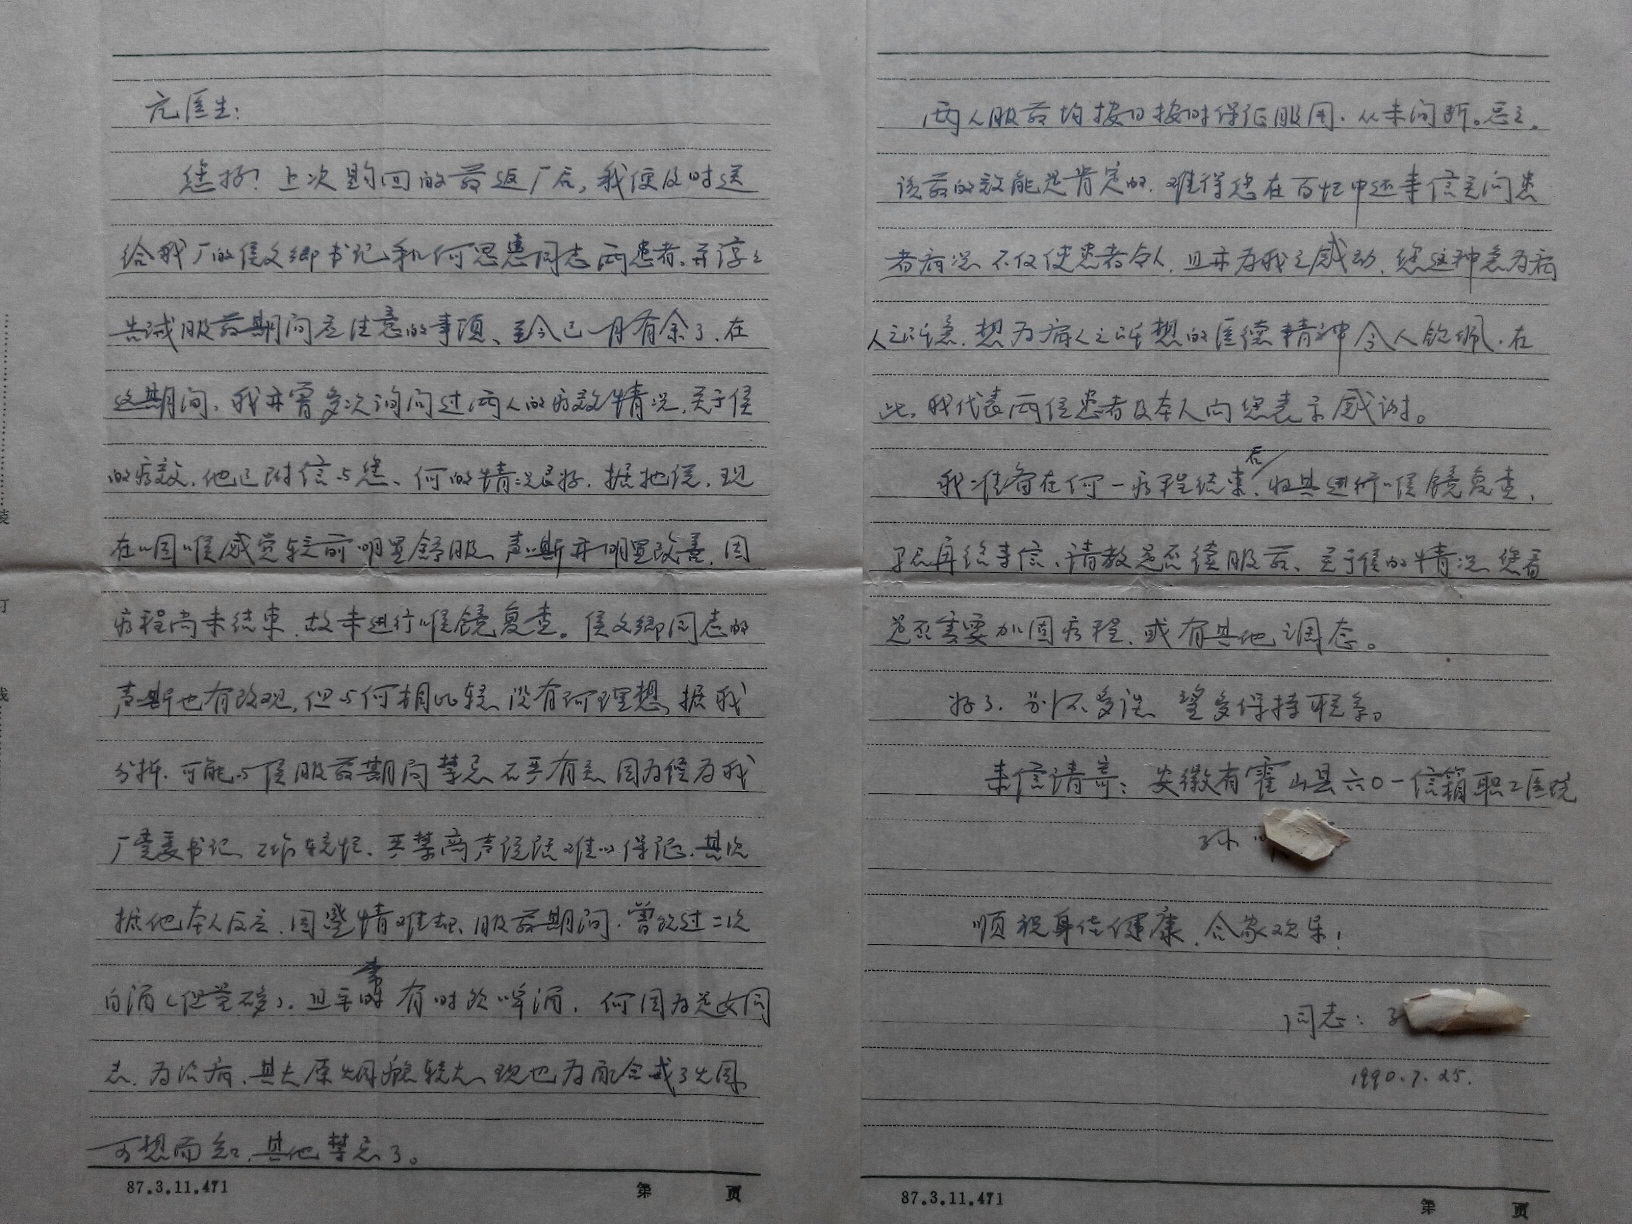 亢医生:
您好!上次购回的药返厂后,我便及时送
给我厂的侯文卿书记和何思惠同志两患者,并谆谆
告诫服药期间应注意的事项、至今已一月有余了、在
这期间,我亦曾多次询问过两人的疗效情况,关于侯
的疗效,他已附信与您、何的情况良好,据她说,现
在咽喉感觉较前明显舒服、声嘶亦明显改善,因
疗程尚未结束,故未进行喉镜复查。侯文卿同志的
声嘶也有改观,但与何相比较,没有何理想,据我
分析,可能与侯服药期间禁忌不严有关,因为侯为我
厂党委书记,工作较忙、严禁高声说话难以保证、其次
据他本人反应,因盛情难却、服药期间,曾饮过二次
白酒(但量不多),且平常有时饮啤酒,何因为是女同
志,为治病,其夫原烟瘾较大,现也为配合戒了烟,
可想而知,其他禁忌了。
87.3.11.471 第 页
两人服药均按日按时保证服用,从未间断。总之,
该药的效能是肯定的,难得您在百忙中还来信关问患
者病况,不仅使患者令人,且亦为我之感动,您这种急为病
人之所急,想为病人之所想的医德精神令人钦佩,在
此,我代表两位患者及本人向您表示感谢。
我准备在何一疗程结束后,将其进行喉镜复查,
尔后再给来信、请教是否续服药、至于侯的情况,您看
是否需要加固疗程,或有其他调态。
好了,别不多谈,望多保持联系。
来信请寄:安徽省霍山县六0一信箱职工医院
孙
顺祝身体健康,合家欢乐!
同志:孙
1990.7.25.
87.3.11.471 第 页
装
订
线